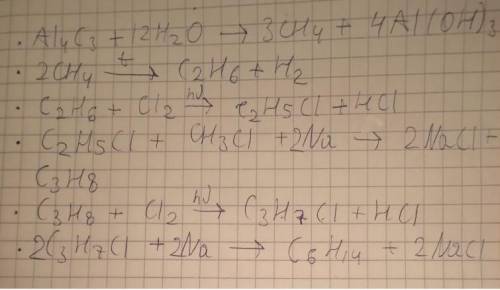 · Al4C3 + 12H2O → 3CH4 + 4Al(OH)3
· 2CH4 t→ C2H6 + H2
· C2H6 + Cl2 hν→ C2H5Cl + HCl
· C2H5Cl + CH3Cl + 2Na → 2NaCl +
C3H8
· C3H8 + Cl2 hν→ C3H7Cl + HCl
· 2C3H7Cl + 2Na → C6H14 + 2NaCl